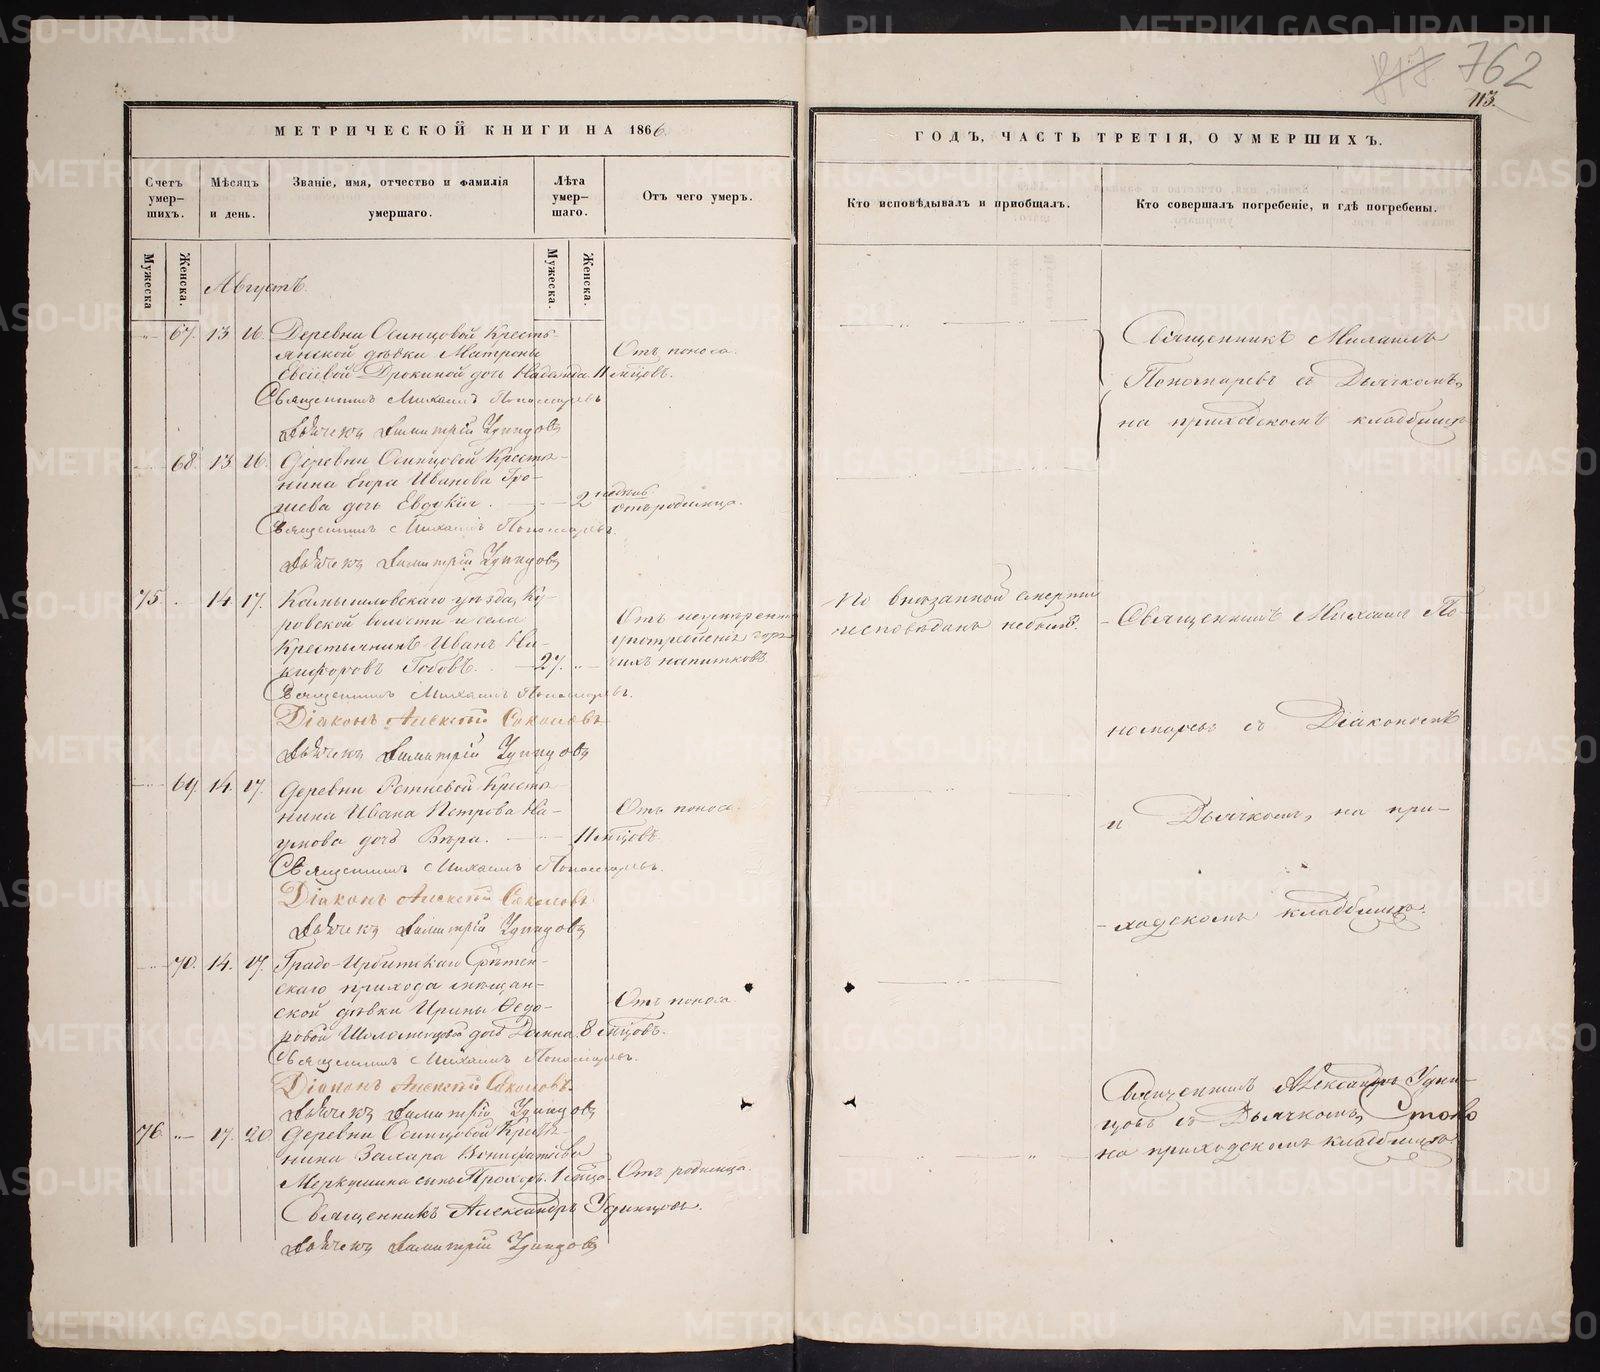 817 762
113.
МЕТРИЧЕСКОЙ КНИГИ НА 1866
Счетъ умер-шихъ.
Мѣсяцъ и день.
Званіе, имя, отчество и фамилія умершаго.
Лѣта умер-шаго.
Отъ чего умеръ.
Мужеска
Женска.
Мужеска.
Женска.
Августъ.
67. 13 16. Деревни Осинцовой Кресть-
янской дѣвки Матроны
Евсіевой Дрокиной дочь Надежда. 11 мцовъ.
Отъ поноса.
Священникъ Михаилъ Пономаревъ
Дьячекъ Димитрій Удинцовъ
68. 13 16. Деревни Осинцовой Крестья-
нина Ивanова
дочь Евдокія. 2 недѣль
Отъ родимца.
Священникъ Михаилъ Пономаревъ.
Дьячекъ Димитрій Удинцовъ
75. 14. 17. Камышловскаго уѣзда,
ровской волости и села
Крестьянинъ Иванъ Ни-
кифоровъ 27.
Отъ неумѣреннаго
употребленія горя-
чихъ напитковъ.
Священникъ Михаилъ Пономаревъ.
Діаконъ Алексѣй Соколовъ
Дьячекъ Димитрій Удинцовъ
69. 14. 17. Деревни Крестья-
нина Ивана Петрова На-
умова дочь Вѣра. 11 мцовъ.
Отъ поноса.
Священникъ Михаилъ Пономаревъ.
Діаконъ Алексѣй Соколовъ
Дьячекъ Димитрій Удинцовъ
70. 14. 17. Градо-Ирбитскаго Срѣтен-
скаго прихода мѣщан-
ской дѣвки Ирины Ѳедо-
ровой дочь 8 мцовъ.
Отъ поноса.
Священникъ Михаилъ Пономаревъ.
Діаконъ Алексѣй Соколовъ.
Дьячекъ Димитрій Удинцовъ
76 17. 20 Деревни Осинцовой Крестья-
нина Захара Вонифатіева
Меркушина сынъ Прохоръ. 1 мца
Отъ родимца.
Священникъ Александръ Удинцовъ.
Дьячекъ Димитрій Удинцовъ
ГОДЪ, ЧАСТЬ ТРЕТІЯ, О УМЕРШИХЪ.
Кто исповѣдывалъ и пріобщалъ.
Кто совершалъ погребеніе, и гдѣ погребены.
Священникъ Михаилъ
Пономаревъ съ Дьячкомъ,
на приходскомъ кладбищѣ
По внезапной смерти
исповѣданъ небылъ.
Священникъ Михаилъ По-
номаревъ съ Діакономъ
и Дьячкомъ, на при-
ходскомъ кладбищѣ.
Священникъ Александръ Удин-
цовъ съ Дьячкомъ,
на приходскомъ кладбищѣ
METRIKI.GASO-URAL.RU